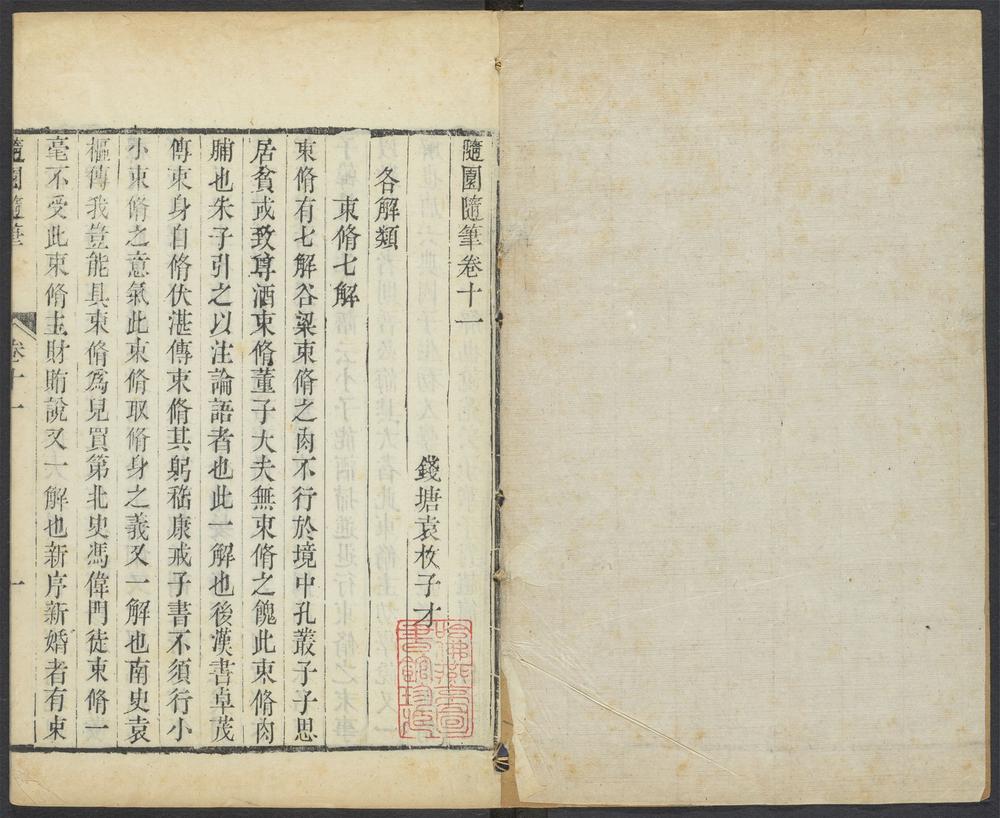 隨園隨筆卷十一
錢塘袁枚子才
各解類
束脩七解
束脩有七解谷梁束脩之肉不行於境中孔叢子子思
居貧或致尊酒束脩董子大夫無束脩之餽此束脩肉
脯也朱子引之以注論語者也此一解也後漢書卓茂
傳束身自脩伏湛傳束脩其躬嵇康戒子書不須行小
小束脩之意氣此束脩取脩身之義又一解也南史袁
樞傳我豈能具束脩爲兒買第北史馮偉門徒束脩一
毫不受此束脩主財賄說又一解也新序新婚者有束
隨園隨筆
卷十一
一
哈佛燕京圖書館珍藏